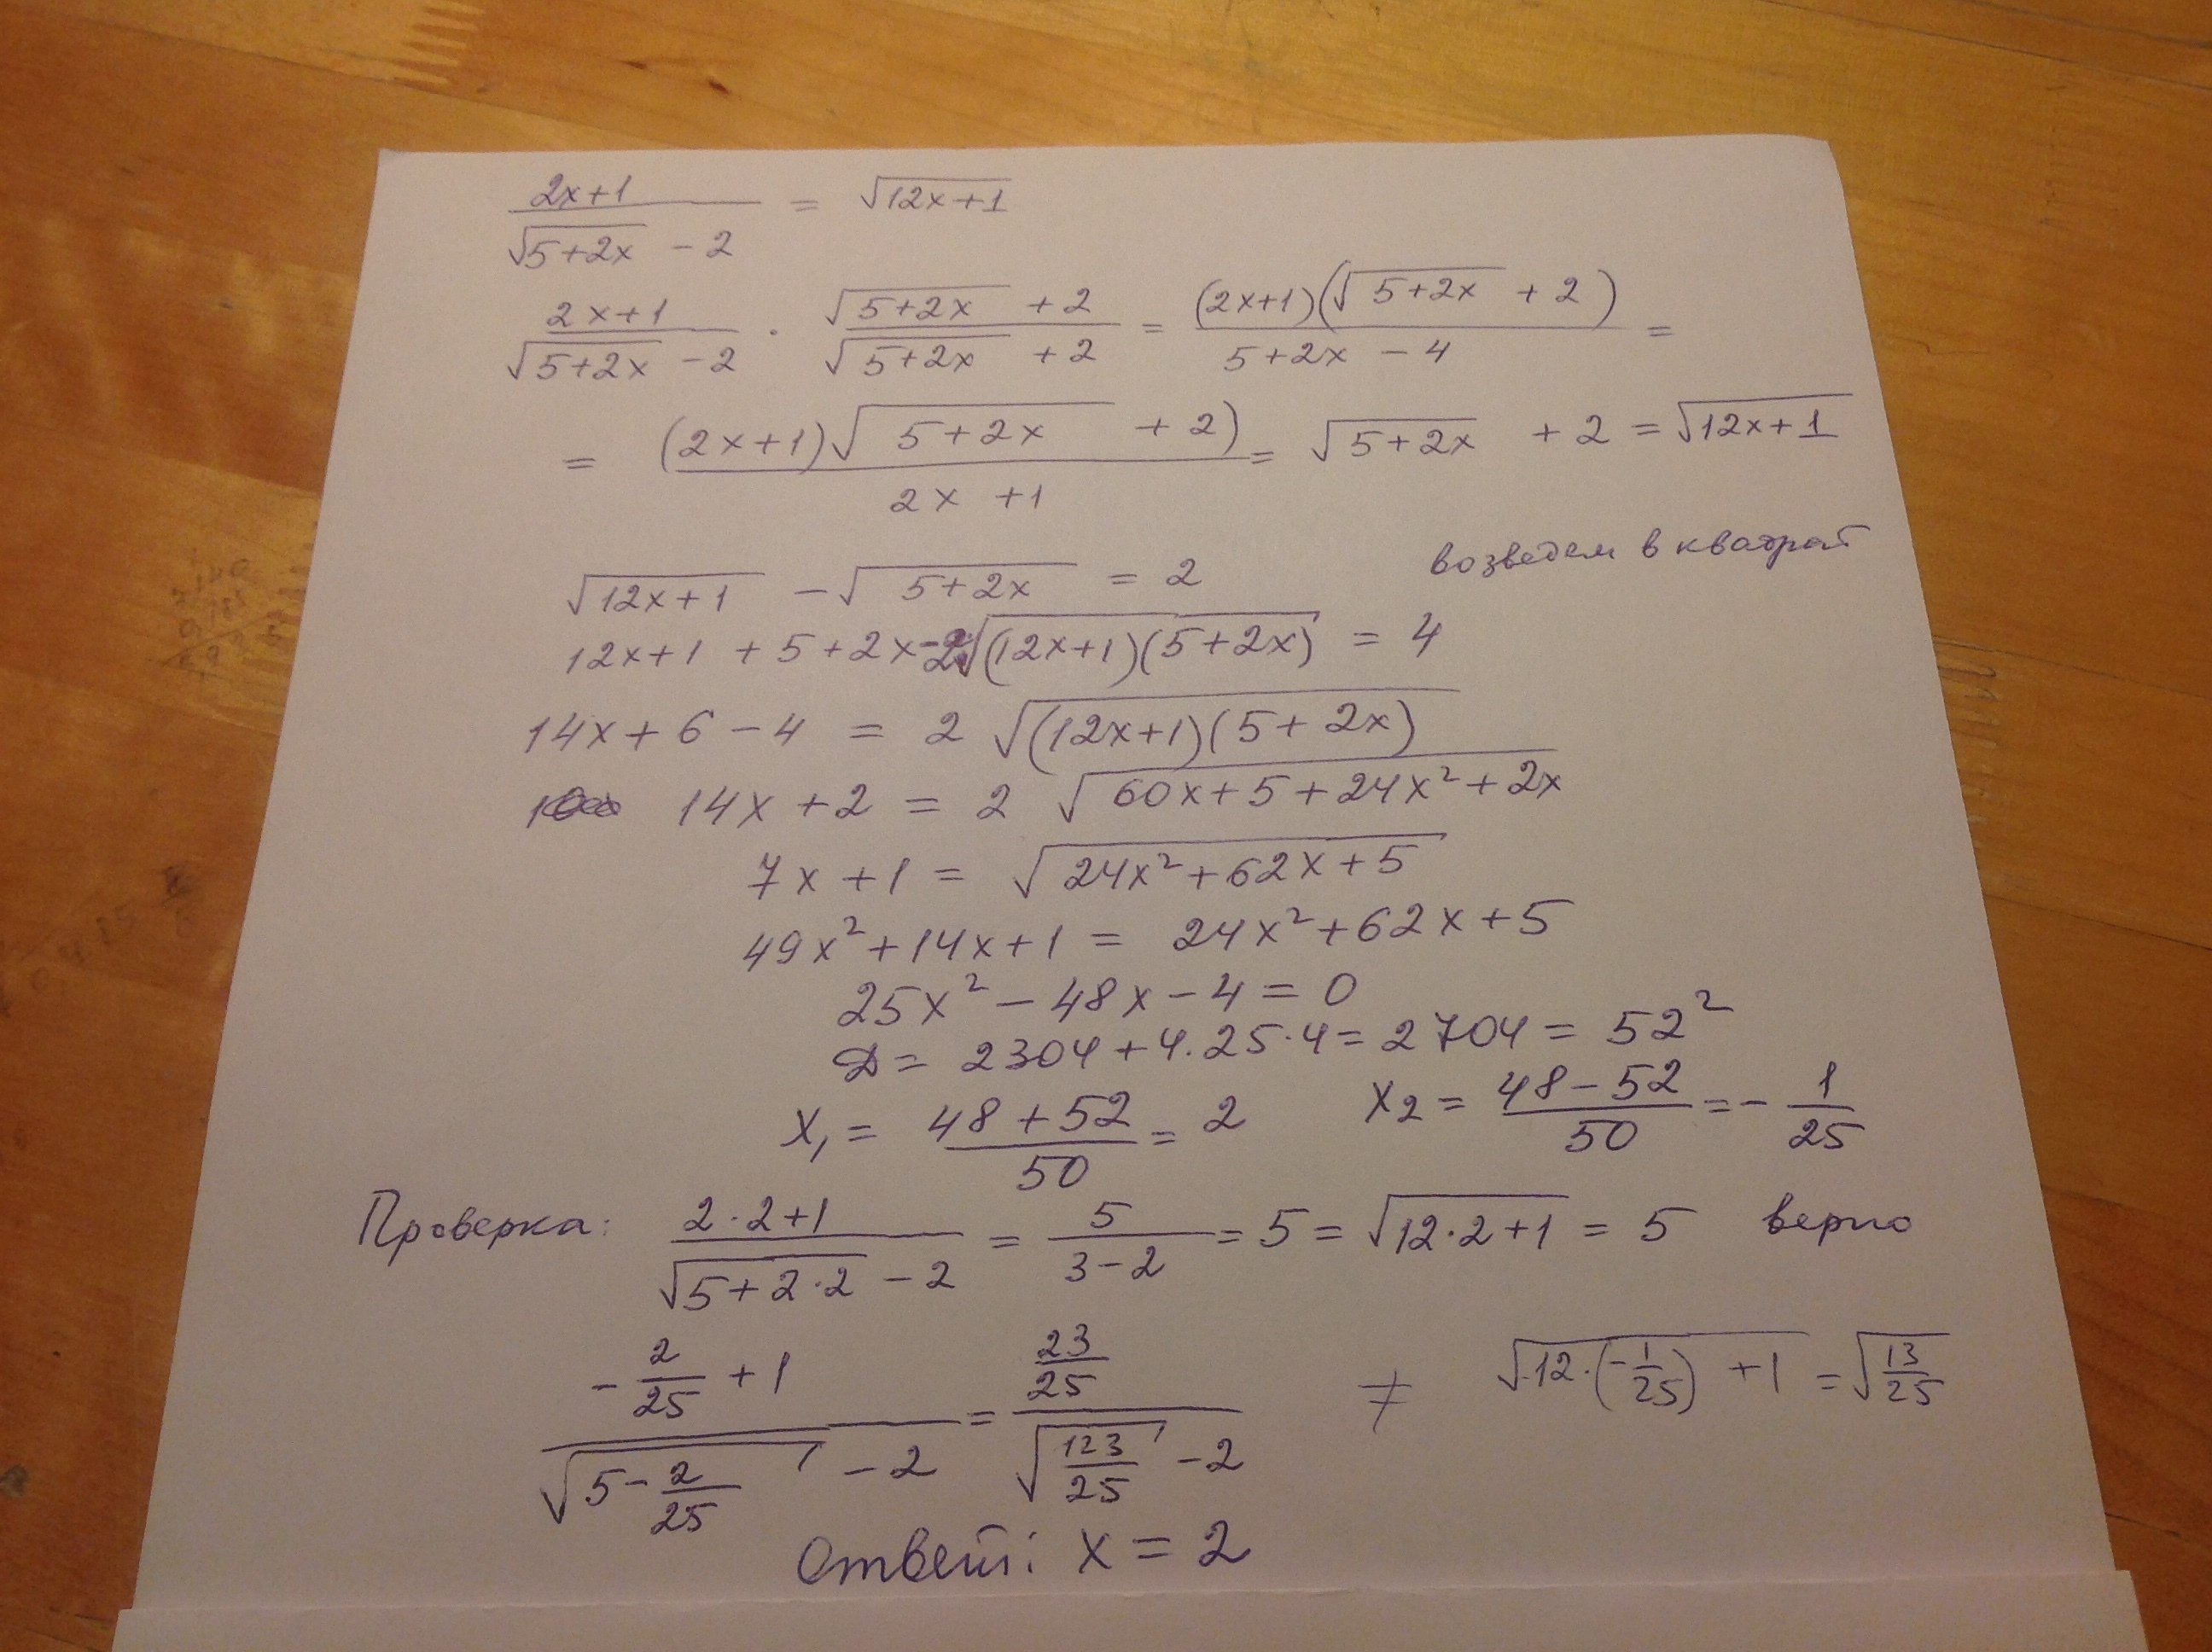 (2x+1)/(√(5+2x) − 2) = √(12x+1)
(2x+1)/(√(5+2x) − 2) · (√(5+2x) + 2)/(√(5+2x) + 2) = (2x+1)(√(5+2x) + 2)/(5+2x − 4) =
= (2x+1)√(5+2x) + 2)/(2x+1) = √(5+2x) + 2 = √(12x+1)
возведем в квадрат
√(12x+1) − √(5+2x) = 2
12x+1 + 5+2x −2√((12x+1)(5+2x)) = 4
14x + 6 − 4 = 2 √((12x+1)(5+2x))
14x + 2 = 2 √(60x+5+24x²+2x)
7x + 1 = √(24x²+62x+5)
49x²+14x+1 = 24x²+62x+5
25x² − 48x − 4 = 0
D = 2304 + 4·25·4 = 2704 = 52²
x₁ = (48 + 52)/50 = 2 x₂ = (48 − 52)/50 = − 1/25
Проверка: (2·2+1)/(√(5+2·2) − 2) = 5/(3−2) = 5 = √(12·2+1) = 5 верно
(−2/25 + 1)/(√(5−2/25) − 2) = (23/25)/(√(123/25) − 2) ≠ √(12·(−1/25) + 1) = √(13/25)
Ответ: x = 2